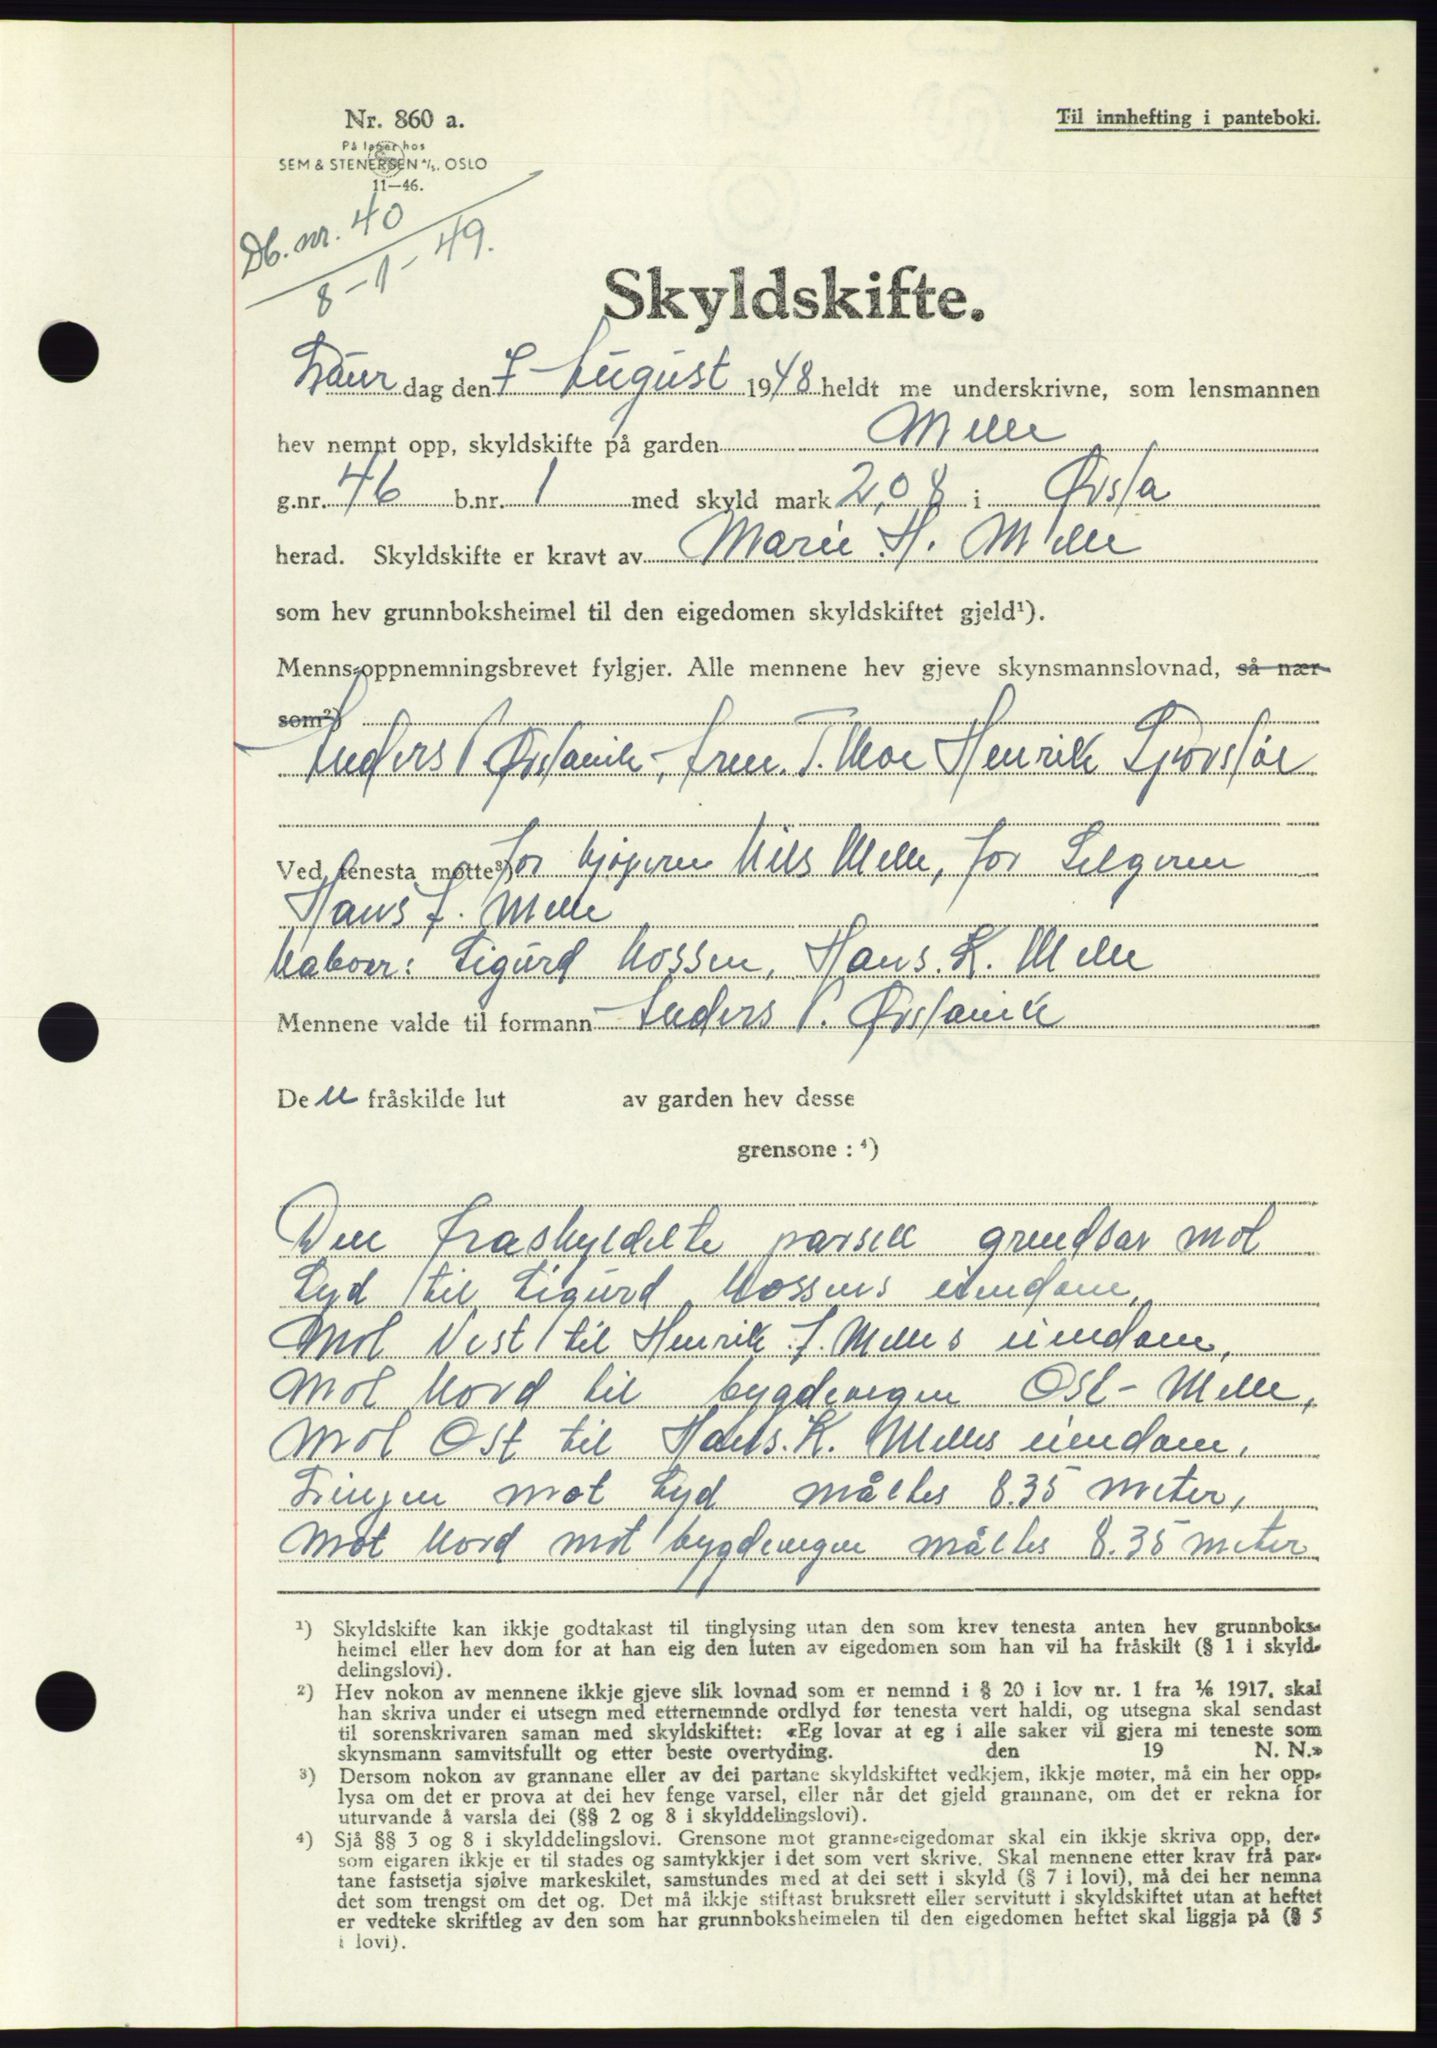 Nr. 860 a.
På lager hos
SEM & STENERSEN A/S. OSLO
11—46.
Til innhefting i panteboki.
Db. nr. 40
8 - 1 - 49.
Skyldskifte.
Laur dag den 7 August 1948 heldt me underskrivne, som lensmannen
hev nemnt opp, skyldskifte på garden Melle
g.nr. 46 b.nr. 1 med skyld mark 2,08 i Ørsta
herad. Skyldskifte er kravt av Marie H. Melle
som hev grunnboksheimel til den eigedomen skyldskiftet gjeld¹).
Menns-oppnemningsbrevet fylgjer. Alle mennene hev gjeve skynsmannslovnad, så nær-
som²)
Anders P. Ørstavik, T. Moe Henrik
Ved tenesta møtte³) for kjøperen Nils Melle, for Selgeren
Hans J. Melle
Naboer: Sigurd Mossen, Hans. K. Melle
Mennene valde til formann Anders P. Ørstavik
De n fråskilde lut av garden hev desse
grensone : ⁴)
Den fraskyldelte parsell grendsar mot
Syd til Sigurd Mossens eiendom,
Mot Vest til Henrik J. Melles eiendom,
Mot Nord til bygdevegen Ost - Melle,
Mot Ost til Hans. K. Melles eiendom,
Linjen mot Syd måltes 8.35 meter,
Mot Nord mot bygdevegen måltes 8.35 meter
¹) Skyldskifte kan ikkje godtakast til tinglysing utan den som krev tenesta anten hev grunnboks-
heimel eller hev dom for at han eig den luten av eigedomen som han vil ha fråskilt (§ 1 i skyld-
delingslovi).
²) Hev nokon av mennene ikkje gjeve slik lovnad som er nemnd i § 20 i lov nr. 1 fra 1/6 1917, skal
han skriva under ei utsegn med etternemnde ordlyd før tenesta vert haldi, og utsegna skal sendast
til sorenskrivaren saman med skyldskiftet: «Eg lovar at eg i alle saker vil gjera mi teneste som
skynsmann samvitsfullt og etter beste overtyding. den 19 N. N.»
³) Dersom nokon av grannane eller av dei partane skyldskiftet vedkjem, ikkje møter, må ein her opp-
lysa om det er prova at dei hev fenge varsel, eller når det gjeld grannane, om det er rekna for
uturvande å varsla dei (§§ 2 og 8 i skylddelingslovi).
⁴) Sjå §§ 3 og 8 i skylddelingslovi. Grensone mot granne-eigedomar skal ein ikkje skriva opp, der-
som eigaren ikkje er til stades og samtykkjer i det som vert skrive. Skal mennene etter krav frå par-
tane fastsetja sjølve markeskilet, samstundes med at dei sett i skyld (§ 7 i lovi), må dei her nemna
det som trengst om det og. Det må ikkje stiftast bruksrett eller servitutt i skyldskiftet utan at heftet
er vedteke skriftleg av den som har grunnboksheimelen til den eigedomen heftet skal liggja på (§ 5
i lovi).